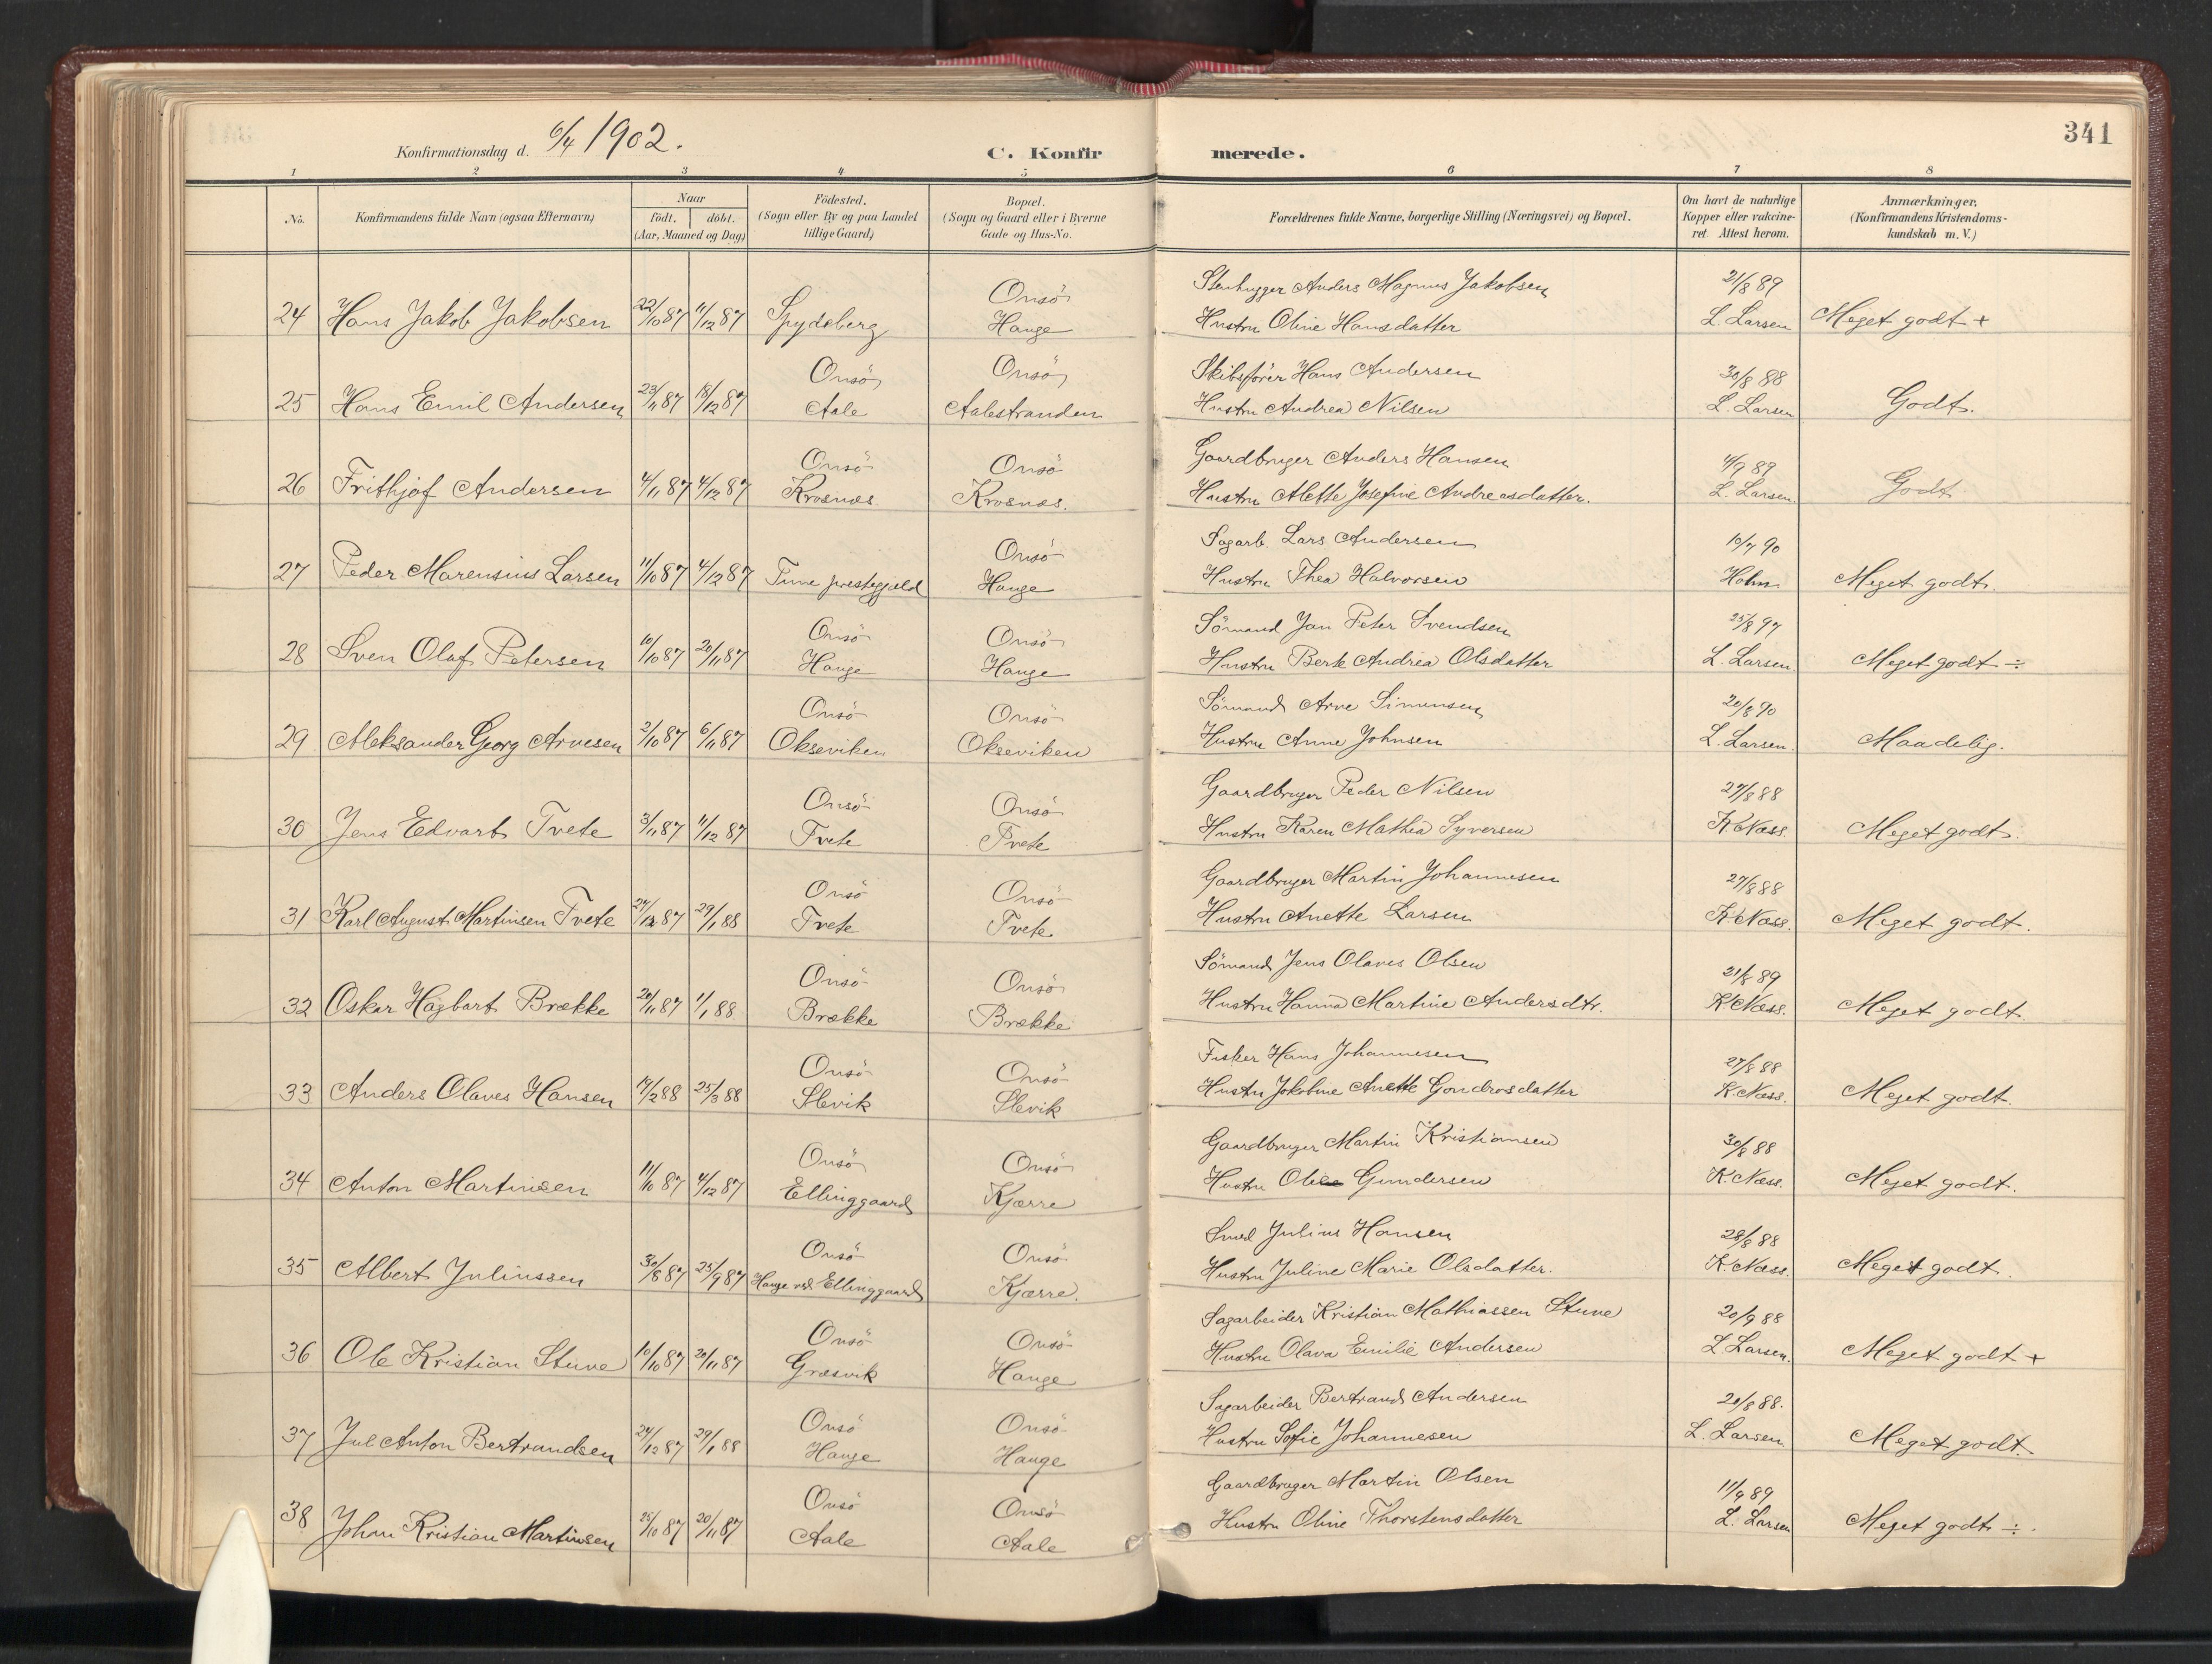 341
Konfirmationsdag d. 6/4 1902.
C. Konfir merede.
1 2 3 4 5 6 7 8
No.
Konfirmandens fulde Navn (ogsaa Efternavn)
Naar
født. døbt.
(Aar, Maaned og Dag)
Fødested.
(Sogn eller By og paa Landet
tillige Gaard)
Bopæl.
(Sogn og Gaard eller i Byerne
Gade og Hus-No.
Forældrenes fulde Navne, borgerlige Stilling (Næringsvei) og Bopæl.
Om havt de naturlige
Kopper eller vakcine-
ret. Attest herom.
Anmærkninger.
(Konfirmandens Kristendoms-
kundskab m. V.)
Onsö Stenhugger Anders Magnus Jakobsen 21/8 89
24 Hans Jakob Jakobsen 22/10 87 11/12 87 Spydeberg Hauge Hustru Oline Hansdatter L. Larsen Meget godt +
Onsö Onsö Skibsfører Hans Andersen 30/8 88
25 Hans Emil Andersen 23/11 87 18/12 87 Aale Aalestranden Hustru Andrea Nilsen L. Larsen Godt.
Onsö Onsö Gaardbruger Anders Hansen 4/9 89
26 Frithjof Andersen 4/11 87 4/12 87 Krosnæs Krosnæs. Hustru Alette Josefine Andreasdatter. L. Larsen. Godt
Onsö Sagarb. Lars Andersen 10/7 90
27 Peder Marensius Larsen 11/10 87 4/12 87 Tune prestegjæld Hauge Hustru Thea Halvorsen Holm Meget godt.
Onsö Onsö Sömand Jan Peter Svendsen 25/8 97
28 Sven Olaf Petersen 10/10 87 20/11 87 Hauge Hauge Hustru Berte Andrea Olsdatter L. Larsen. Meget godt ÷
Onsö Onsö Sömand Arne Simensen 20/8 90
29 Aleksander Georg Arvesen 2/10 87 6/11 87 Okseviken Okseviken Hustru Anne Johnsen L. Larsen. Maadelig.
Onsö Onsö Gaardbruger Peder Nilsen 27/8 88
30 Jens Edvart Tvete 3/11 87 11/12 87 Tvete Tvete Hustru Karen Mathea Syversen K. Næss. Meget godt.
Onsö Onsö Gaardbruger Martin Johannesen 27/8 88
31 Karl August Martinsen Tvete 27/12 87 29/1 88 Tvete Tvete Hustru Anette Larsen K. Næss. Meget godt.
Onsö Onsö Sömand Jens Olaves Olsen 21/8 89
32 Oskar Hagbart Brække 20/11 87 1/1 88 Brække Brække Hustru Hanna Martine Andersdtr. K. Næss. Meget godt.
Onsö Onsö Fisker Hans Johannesen 27/8 88
33 Anders Olaves Hansen 17/2 88 25/3 88 Slevik Slevik Hustru Jakobine Anette Gondrosdatter K. Næss. Meget godt.
Onsö Onsö Gaardbruger Martin Kristiansen 30/8 88
34 Anton Martinsen 11/10 87 4/12 87 Ellinggaard Kjærre Hustru Gundersen K. Næss. Meget godt.
Onsö Onsö Smed Julius Hansen 28/8 88
35 Albert Juliussen 30/8 87 25/9 87 Hauge ved Ellinggaard Kjærre. Hustru Juline Marie Olsdatter. K. Næss. Meget godt.
Onsö Onsö Sagarbeider Kristian Mathiassen Stuve 20/9 88
36 Ole Kristian Stuve 10/10 87 20/11 87 Græsvik Hauge Hustru Olava Emilie Andersen L Larsen. Meget godt +
Onsö Onsö Sagarbeider Bertrand Andersen 20/8 88.
37 Jul Anton Bertrandsen 24/12 87 29/1 88 Hauge Hauge Hustru Sofie Johannesen L. Larsen. Meget godt.
Onsö Onsö Gaardbruger Martin Olsen 11/9 89
38 Johan Kristian Martinsen 25/10 87 20/11 87 Aale Aale Hustru Oline Thorstensdatter L. Larsen Meget godt ÷.